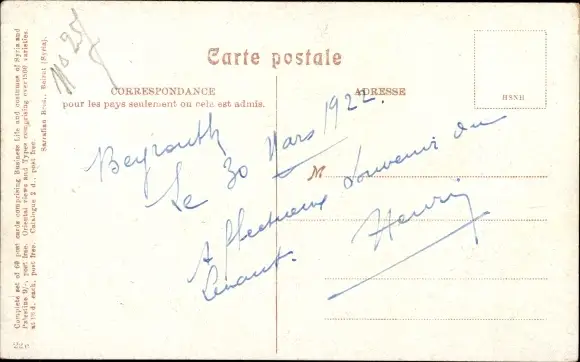 No 25
Carte postale
CORRESPONDANCE
pour les pays seulement ou cela est admis.
ADRESSE
HSNH
Complete set of 60 post cards comprising Business life and costumes of Syria and
Palestine 9/-. post free. Oriental views and Types comprising over 1600 varieties
at 1½ d. each. post free. Catalogue 2 d. post free.
Sarrafian Bros., Beirut (Syria).
Beyrouth
Le 30 Mars 1922.
M
Affectueux Souvenir du
Levant.
Henri